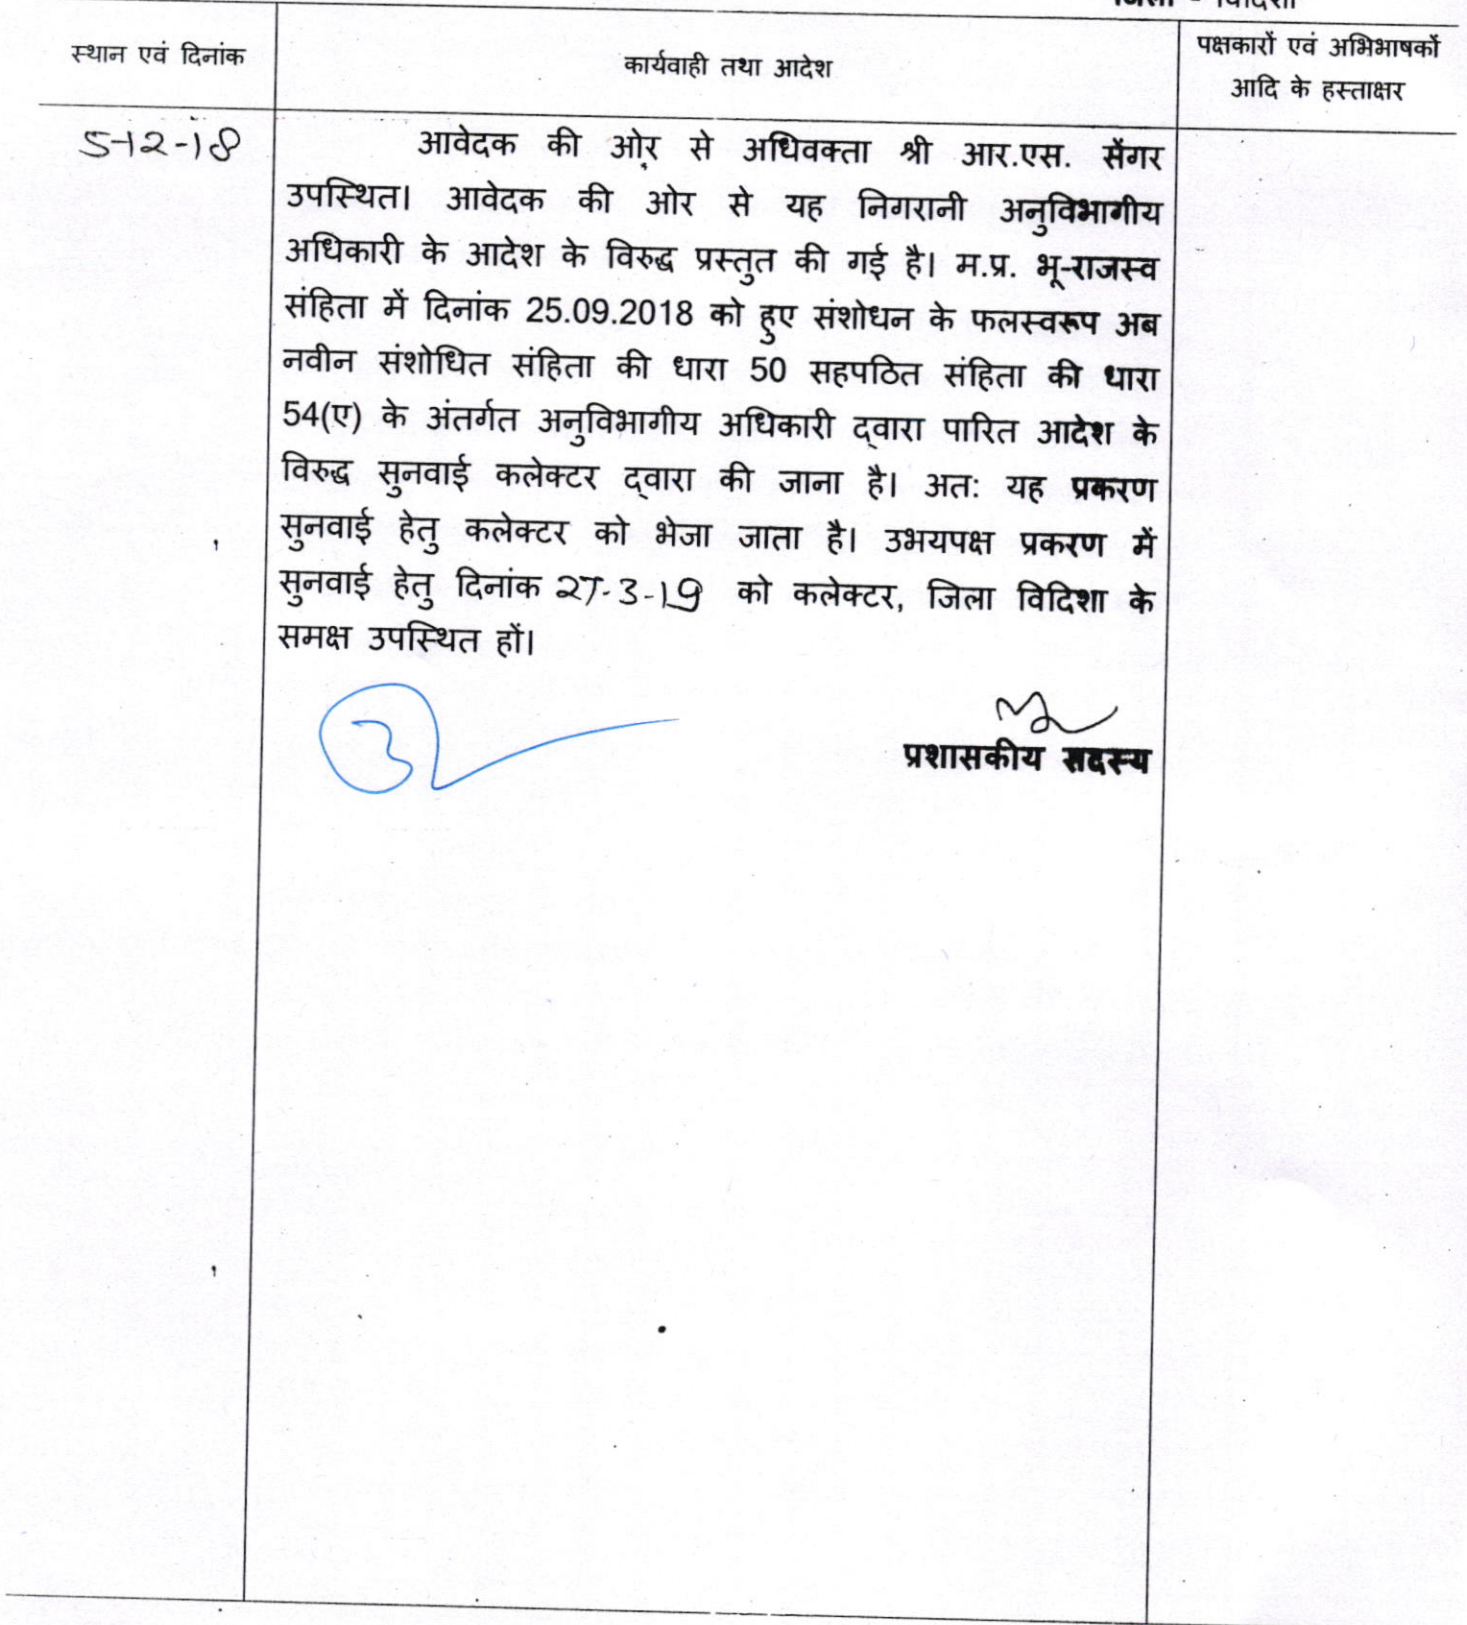 जिला - विदिशा
स्थान एवं दिनांक
कार्यवाही तथा आदेश
पक्षकारों एवं अभिभाषकों
आदि के हस्ताक्षर
5-12-18
आवेदक की ओर से अधिवक्ता श्री आर.एस. सेंगर
उपस्थित। आवेदक की ओर से यह निगरानी अनुविभागीय
अधिकारी के आदेश के विरुद्ध प्रस्तुत की गई है। म.प्र. भू-राजस्व
संहिता में दिनांक 25.09.2018 को हुए संशोधन के फलस्वरूप अब
नवीन संशोधित संहिता की धारा 50 सहपठित संहिता की धारा
54(ए) के अंतर्गत अनुविभागीय अधिकारी द्वारा पारित आदेश के
विरुद्ध सुनवाई कलेक्टर द्वारा की जाना है। अतः यह प्रकरण
सुनवाई हेतु कलेक्टर को भेजा जाता है। उभयपक्ष प्रकरण में
सुनवाई हेतु दिनांक 27-3-19 को कलेक्टर, जिला विदिशा के
समक्ष उपस्थित हों।
प्रशासकीय सदस्य